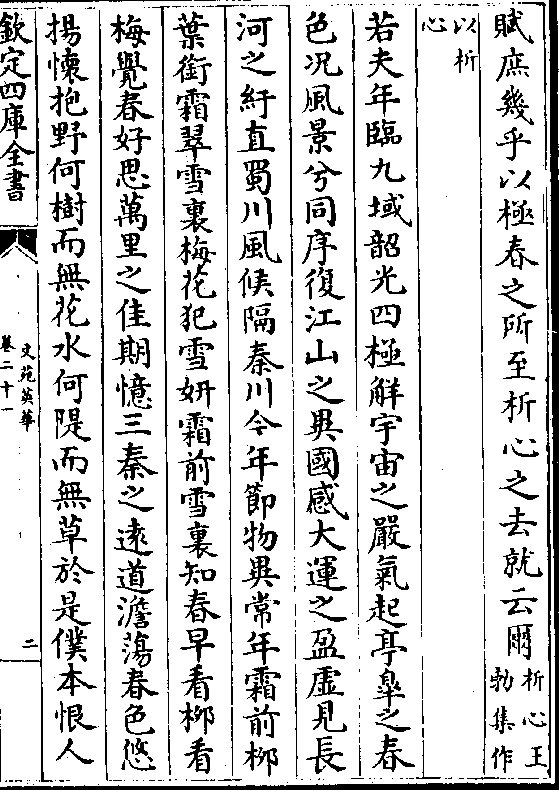 賦庶幾乎以極春之所至析心之去就云爾析心王勃集作
以析心
若夫年臨九域韶光四極解宇宙之嚴氣起亭臯之春
色况風景兮同序復江山之異國感大運之盈虛見長
河之紆直蜀川風候隔秦川今年節物異常年霜前柳
葉銜霜翠雪裏梅花犯雪妍霜前雪裏知春早看柳看
梅覺春好思萬里之佳期憶三秦之遠道澹蕩春色悠
揚懷抱野何樹而無花水何隄而無草於是僕本恨人
欽定四庫全書
文苑英華
卷二十一
二